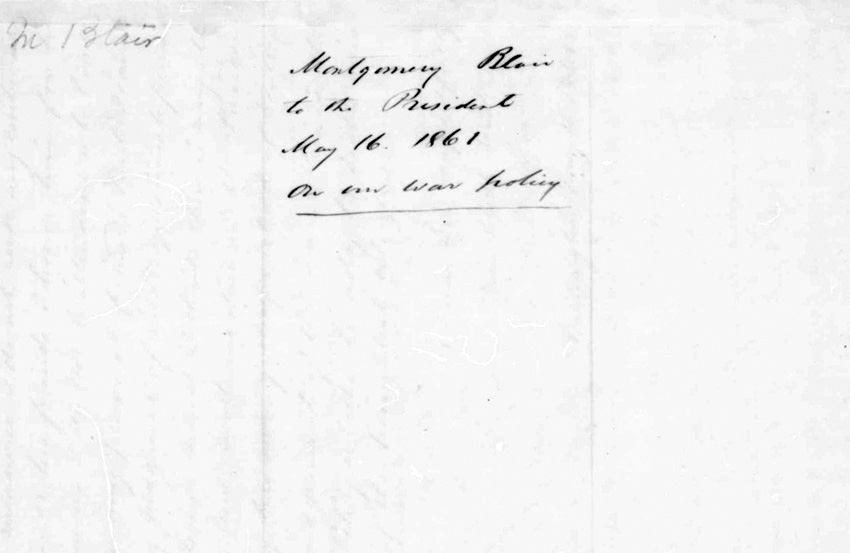 M Blair
Montgomery Blair
to the President
May 16. 1861
On our war policy